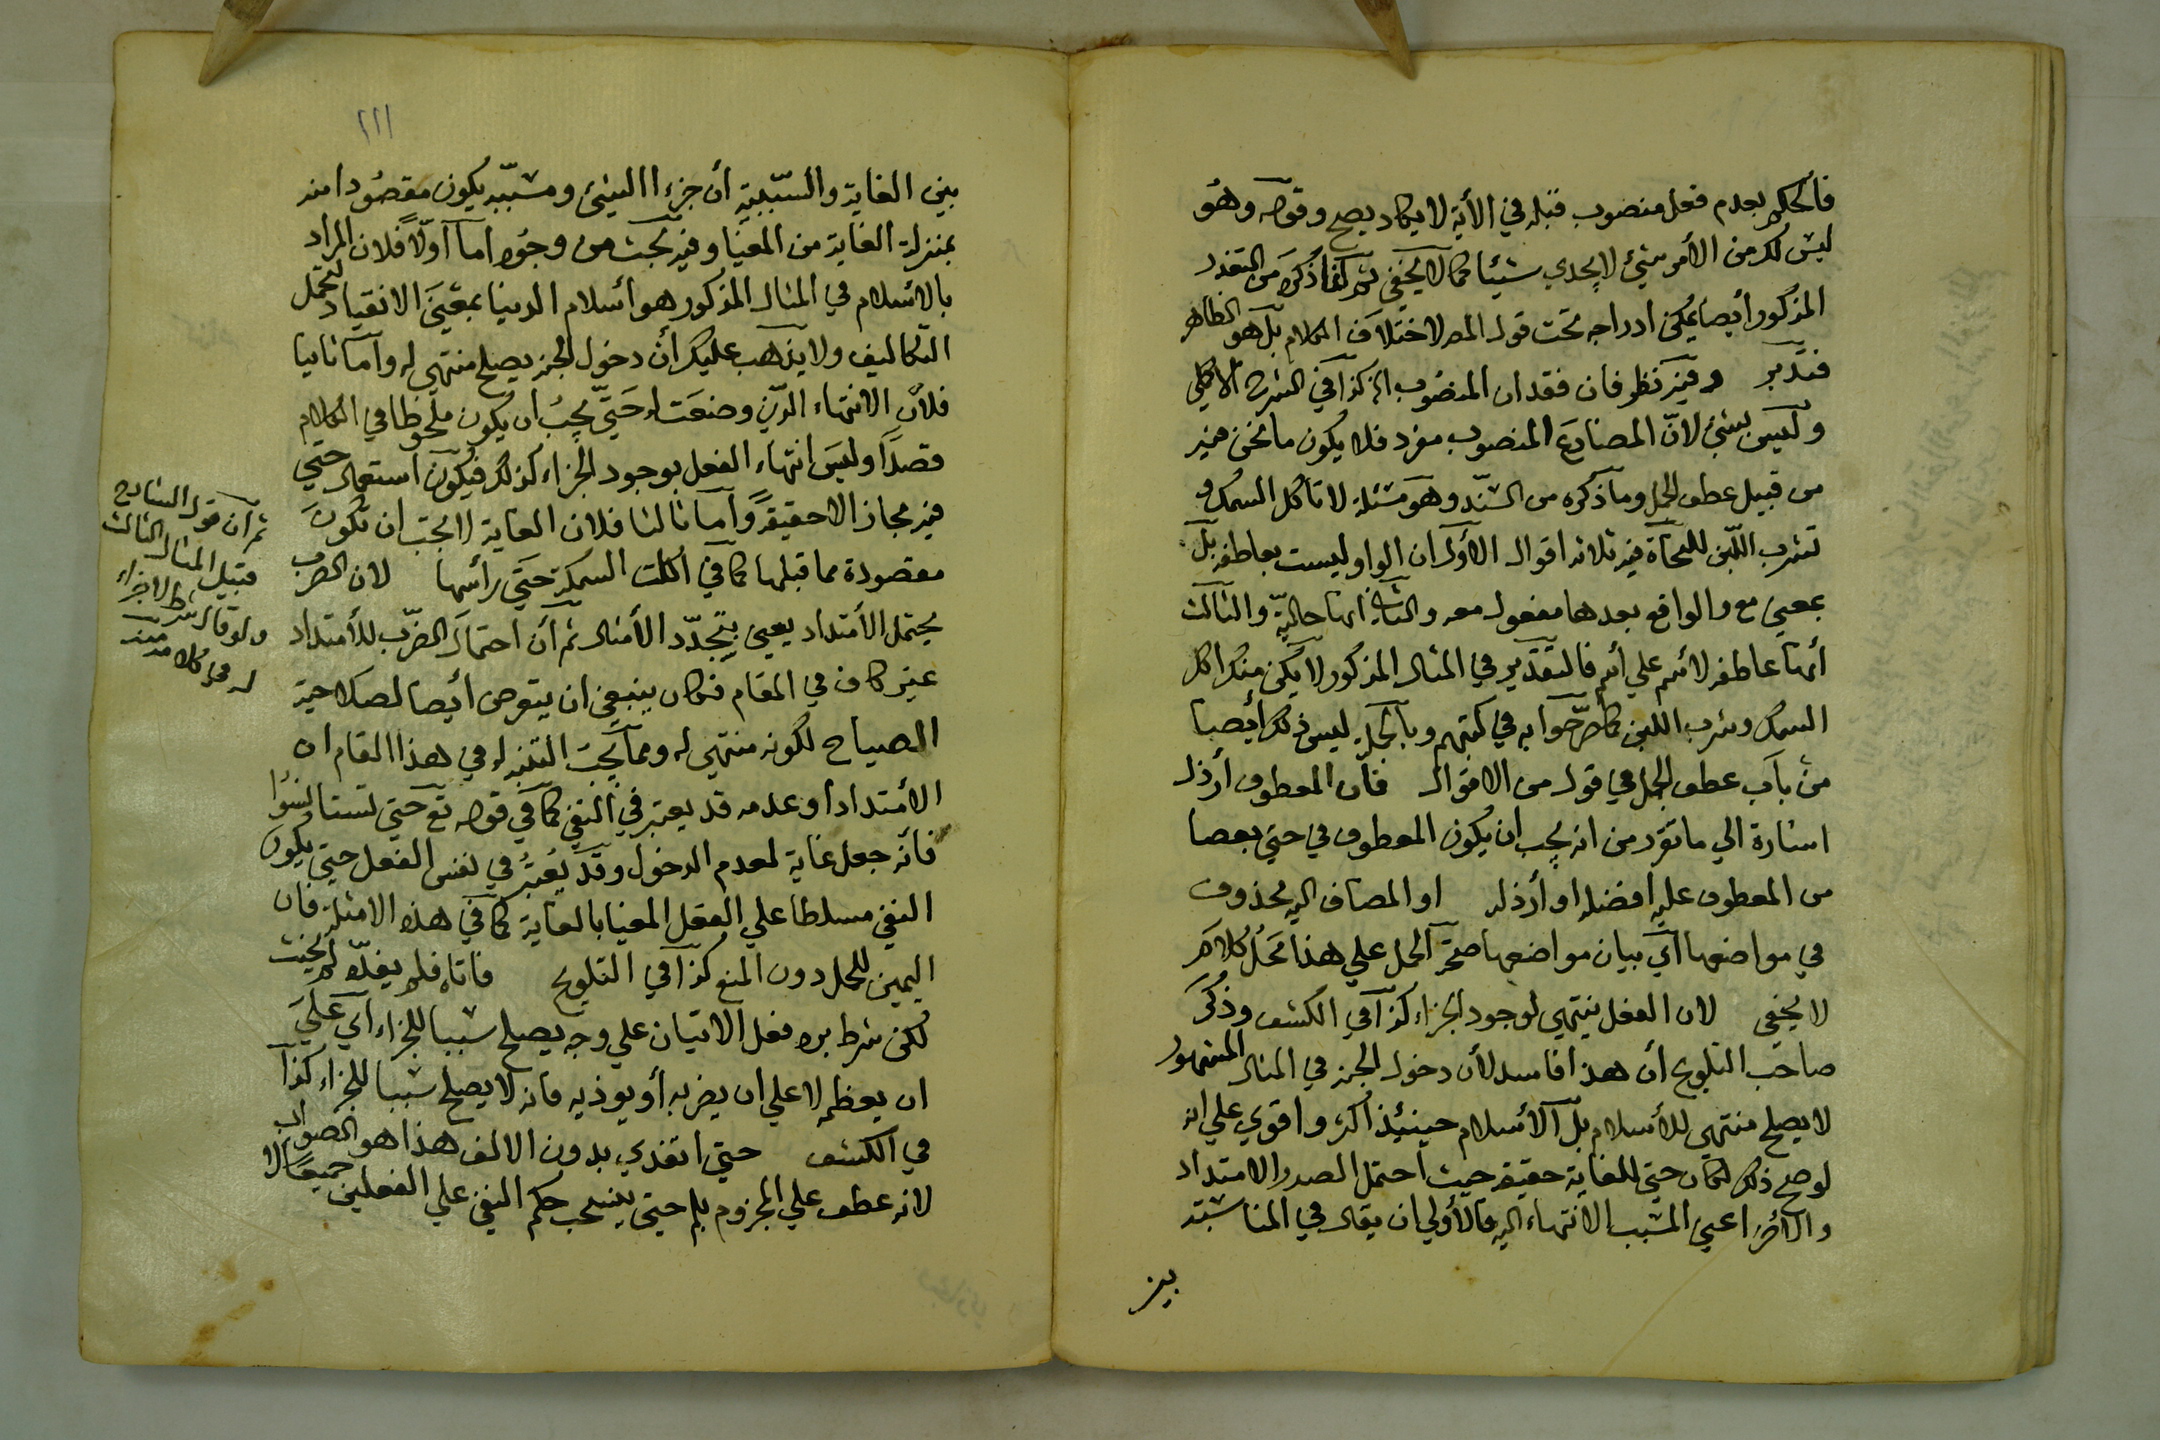 فالحكم بعدم فعل منصوب قبله في الأية لا يكاد يصح وقوله وهو
ليس لك من الأمر شيئ لا يجدي شيئا كما لا يخفي ثم كما ذكره من التقدير
المذكور أيضا يمكن ادراجه تحت قوله المص لاختلاف الكلام بل هو الظاهر
فتدبر وفيه نظر فان فقدان المنصوب الخ كذا في الشرح الاكملي
وليس بشئ لانّ المضارع المنصوب مفرد فلا يكون ما نحن فيه
من قبيل عطف الجمل وما ذكره من السّند وهو مسئلة لا تأكل السمك و
تشرب اللّبن للنحاة فيه ثلاثه اقوال الأول ان الواو ليست بعاطفه بل
بمعني مع والواقع بعدها مفعول معه والثاني انها حاليّة والثالث
أنها عاطفه لاسم علي أسم فالتقدير في المثال المذكور لا يكن منك اكل
السمك وشرب اللبن كما صرّحوا به في كتبهم وبالجملة ليس ذلك أيضا
من باب عطف الجمل في قول من الاقوال فان المعطوف أرذل
اشارة الي ما تقرّر من انه يجب ان يكون المعطوف في حتي بعضا
من المعطوف عليه افضله او أرذله او المضاف اليه محذوف
في مواضعها اي بيان مواضعها صحة الحمل علي هذا محل كلام
لا يخفي لان الفعل ينتهي لوجود الجزاء كذا في الكشف وذكر
صاحب التلويح أن هذا فاسد لأن دخول الجنة في المثال المشهور
لا يصلح منتهي للأسلام بل الأسلام حينئذ أكثر واقوي علي انه
لو صح ذلك لكان حتي للغاية حقيقة حيث احتمل الصدر الامتداد
والأخر اعني المسبب الانتهاء اليه فالأولي ان يقال في المناسبة
بين
١١١
بين الغاية والسّببية أن جزءا الشيئ ومسببه يكون مقصودا منه
بمنزلة الغاية من المغيا وفيه بحث من وجوه اما أولا فلان المراد
بالاسلام في المثال المذكور هو أسلام الدنيا بمعني الانقياد لتحمل
التكاليف ولا يذهب عليك أن دخول الجنة يصلح منتهي له وأما ثانيا
فلأن الانتهاء الذي وضعت له حتي يجب ان يكون ملحوظا في الكلام
قصدا وليس انتهاء الفعل بوجود الجزاء كذلك فيكون استعمال حتي
فيه مجازا لا حقيقة وأما ثالثا فلان الغاية لا يجب ان تكون
مقصودة مما قبلها كما في أكلت السمكة حتي رأسها لان الضرب
يحتمل الأمتداد يعني بتجدّد الأمثال ثم أن احتمال الضرب للأمتداد
غير كاف في المقام فكان ينبغي ان يتعرض أيضا لصلاحية
الصياح لكونه منتهي له ومما يجب التنبه له في هذا المقام ان
الأمتداد او عدمه قد يعتبر في النفي كما في قوله تع حتي تستانسوا
فأنه جعل غاية لعدم الدخول وقد يعتبر في نفس الفعل حتي يكون
النفي مسلطا علي الفعل المغيا بالغاية كما في هذه الامثلة فان
اليمين للحمل دون المنع كذا في التلويح فاتاه فلم يغدّه لم يحنث
لكن شرط بره فعل الاتيان علي وجه يصلح سببا للجزاء أي علي
ان يعظمه لا علي ان يضربه أو يوذيه فانه لا يصلح سببا للجزاء كذا
في الكشف حتي اتغدي بدون الالف هذا هو الصواب
لانه عطف علي المجزوم بلم حتي ينسحب حكم النفي علي الفعلين جميعا لا
ثم أن قول الشارح
قبيل المثال الثالث
ولو قال شرط لا جزاء
له محل كلام منه